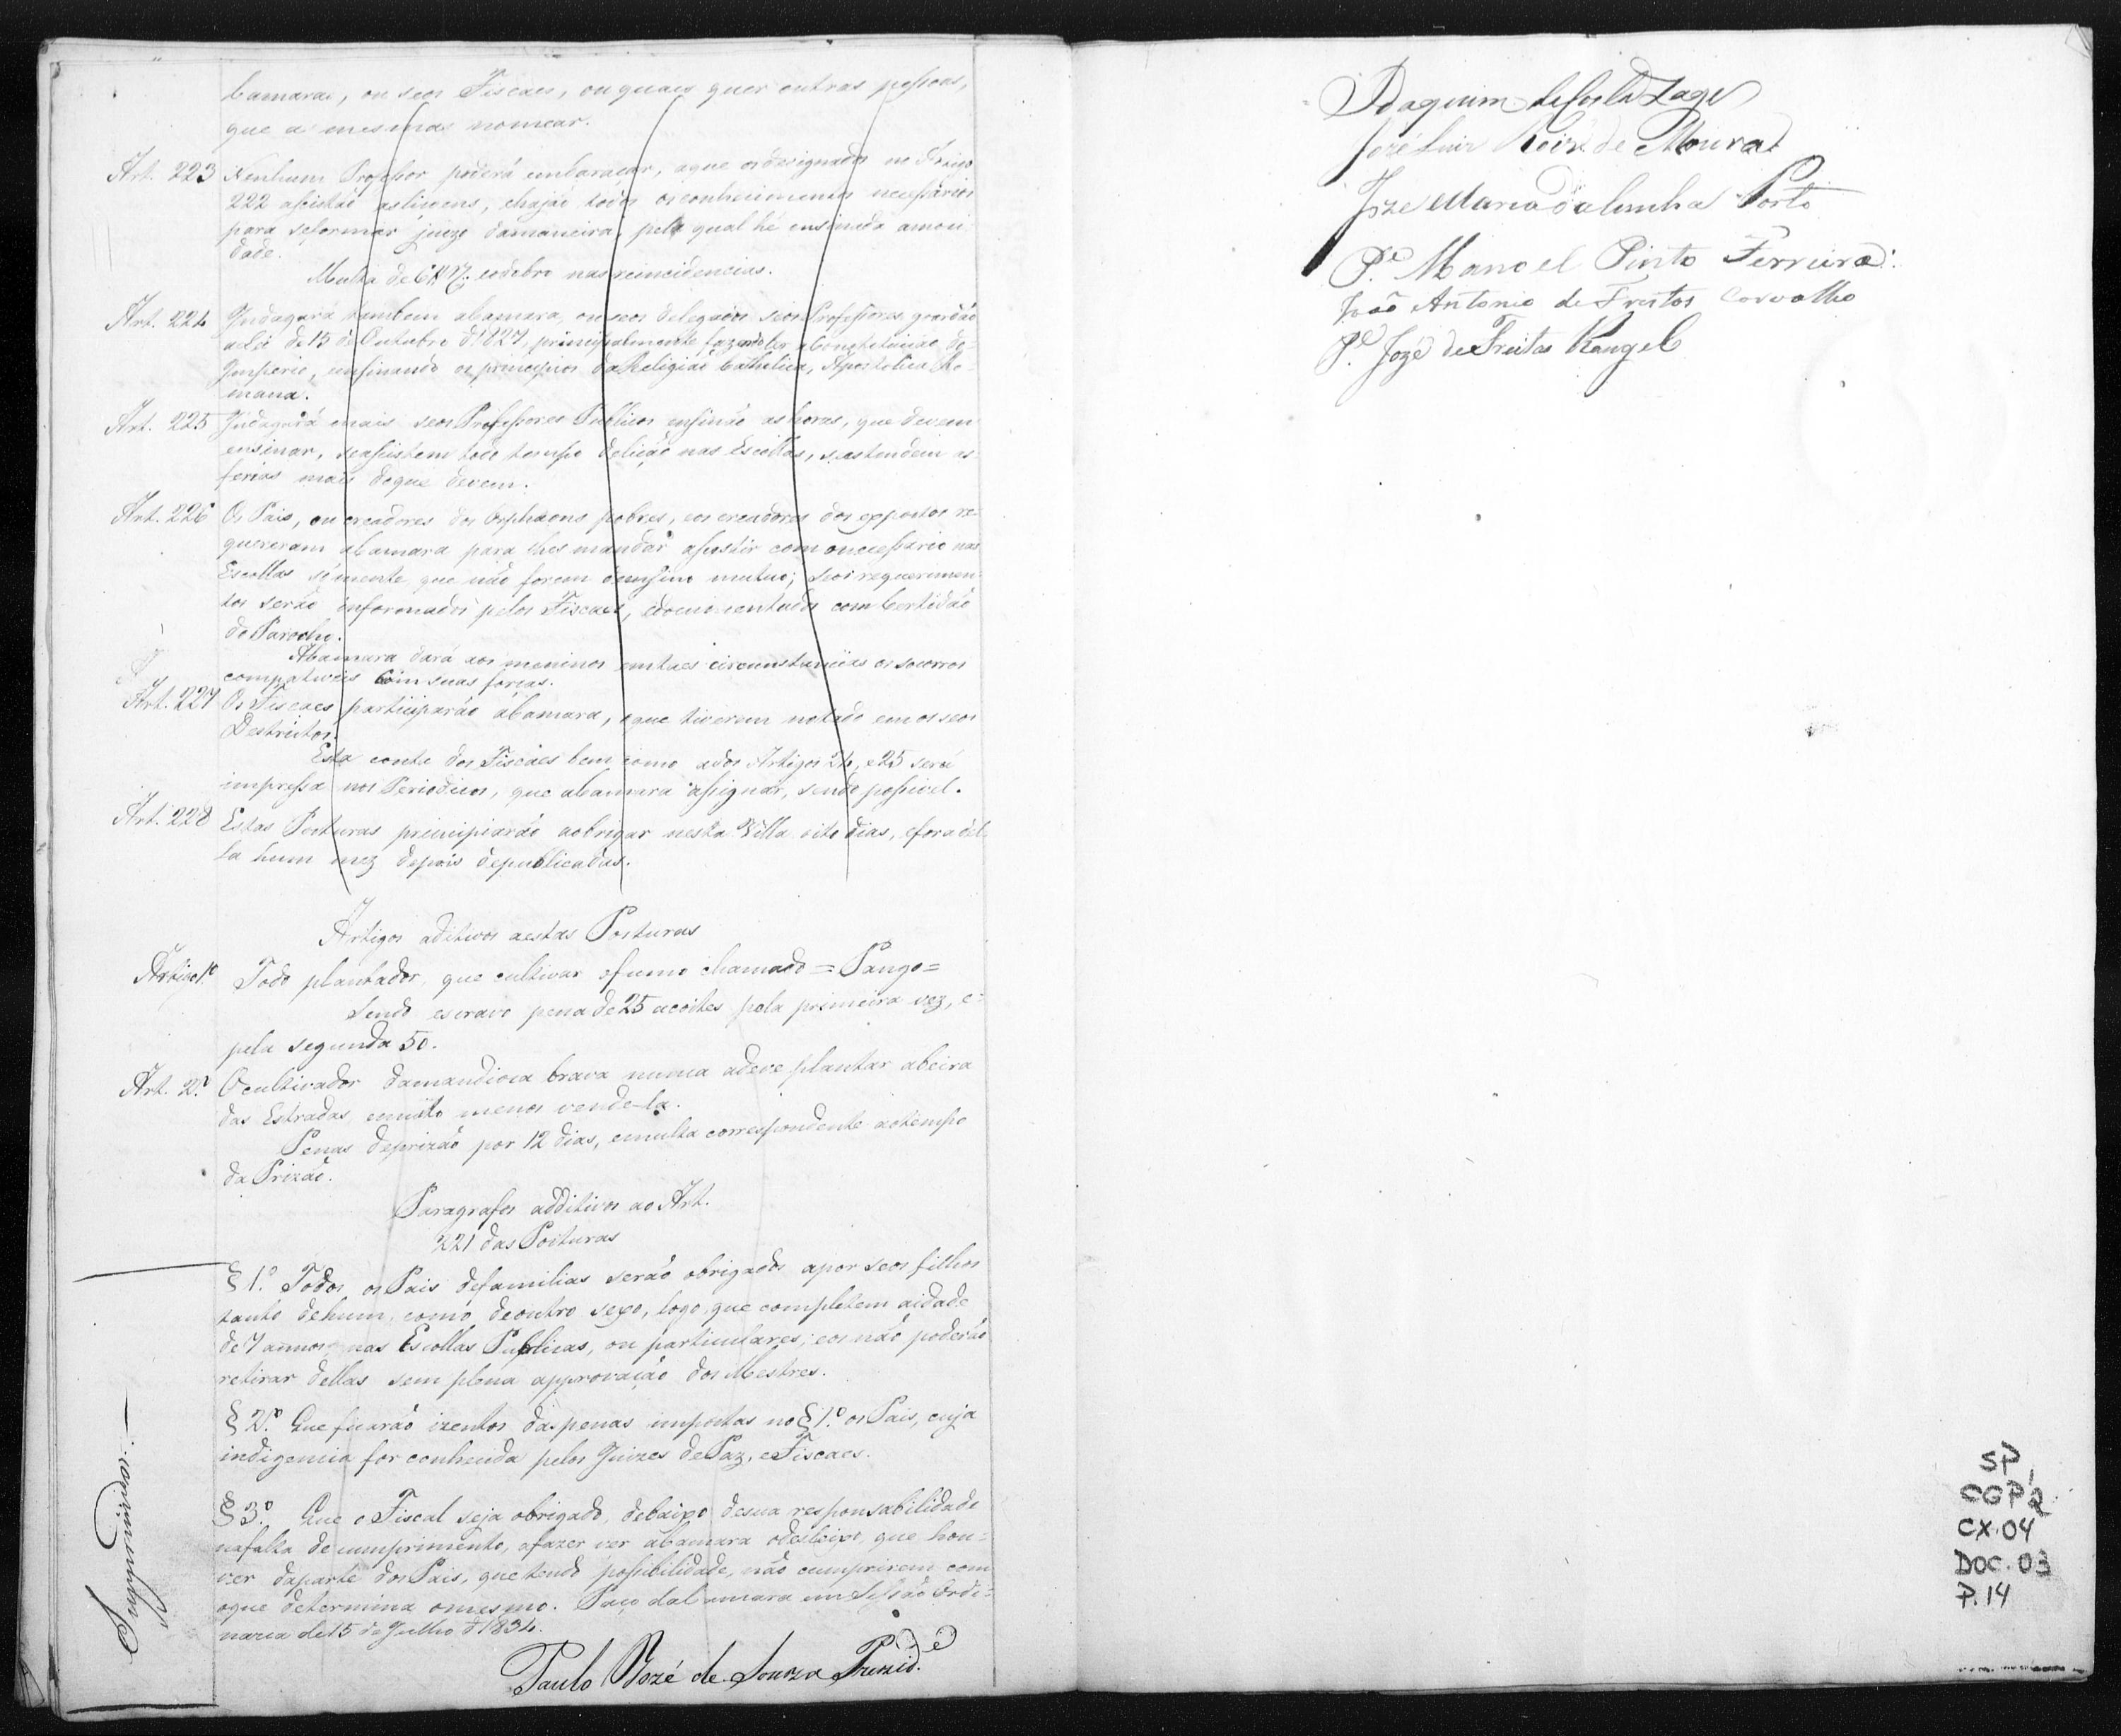 Camara, ou seos Fiscaes, ou quaes quer outras pessoas,
que as mesmas nomear.
Art. 223 Nenhum Professor poderá embaraçar, aque os designados no Artigo
222 assistão as liçoens, e hajão todos os conhecimentos necessários
para se formar juizo damaneira, pela qual hé ensinada a moci
dade.
Multa de 6$ rs. e o dobro nas reincidencias.
Art. 224 Indagará tambem aCamara, ou seos delegados seos Professores guardão
a Lei de 15 de Outubro d'1827, principalmente fazendo ler aConstituição do
Imperio, ensinando os principios da Religião Catholica, Apostolica Ro-
mana.
Art. 225 Indagará mais seos Professores Publicos ensinão as horas, que devem
ensinar, se assistem todo tempo de lição nas Escollas, se estendem as
ferias mais doque devem.
Art. 226 Os Pais, ou creadores dos Orphaons pobres, e os creadores dos expostos re-
quereram aCamara para lhes mandar assistir com o necessario nas
Escollas sómente que não forem d'ensino mutuo; seos requerimen
tos serão informados pelos Fiscaes, e documentados com Certidão
do Parocho.
ACamara dará aos meninos em taes circunstancias os socorros
compativeis com suas forças.
Art. 227 Os Fiscaes participarão áCamara, o que tiverem notado em os seos
Destrictos.
Esta conta dos Fiscaes bem como a dos Artigos 24, e 25 será
impressa nos Periodicos, que aCamara assignar, sendo possivel.
Art. 228 Estas Posturas principiarão aobrigar nesta Villa oito dias, e fora del
la hum mez depois depublicadas.
Artigos aditivos aestas Posturas
Artigo 1º Todo plantador, que cultivar o fumo chamado = Pango =
sendo escravo pena de 25 acoites pela primeira vez, e
pela segunda 50.
Art. 2º O cultivador damandioca brava nunca adeve plantar abeira
das Estradas, e muito menos vende-la.
Penas deprizão por 12 dias, e multa correspondente ao tempo
da Prizão.
Paragrafos additivos ao Art.
221 das Posturas
§ 1.º Todos os Pais defamilias serão obrigados apor seos filhos
tanto dehum, como deoutro sexo, logo que completem aidade
de 7 annos nas Escollas Publicas, ou particulares; e os não poderão
retirar dellas sem plena approvação dos Mestres.
§ 2.º Que ficarão izentos das penas impostas no § 1.º os Pais, cuja
indigencia for conhecida pelos Juizes dePaz, e Fiscaes.
§ 3.º Que o Fiscal seja obrigado, debaixo desua responsabilidade
nafalta de cumprimento, afazer ver aCamara o desleixo, que hou-
ver daparte dos Pais, que tendo possibilidade, não cumprirem com
oque determina o mesmo. Paço daCamara em Sessão Ordi-
naria de 15 de Julho d'1834.
Paulo Jozé de Souza Prezid.e
Joaquim da Costa Lage
José Luiz Roiz de Moura
Joze Maria da Cunha Porto
P.e Manoel Pinto Ferreira
João Antonio de Freitas Carvalho
P.e Jozé de Freitas Rangel
SP,
CGP2
CX.04
DOC.03
P.14